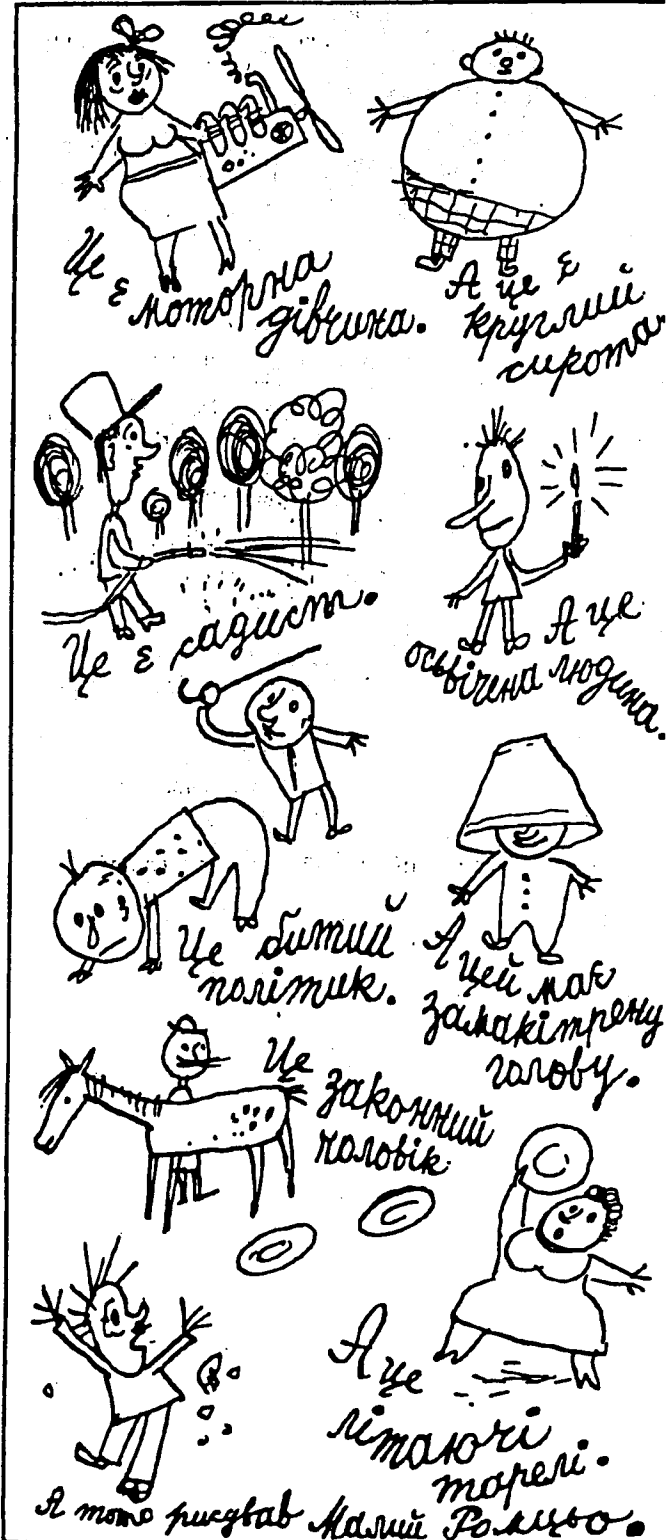 Це є моторна
дівчина.
А це є
круглий
сирота.
Це є садист.
А це
осьвічена людина.
Це битий
політик.
А цей має
замакітрену
голову.
Це
законний
чоловік.
А це
літаючі
тарелі.
А тото рисував Малий Ромцьо.